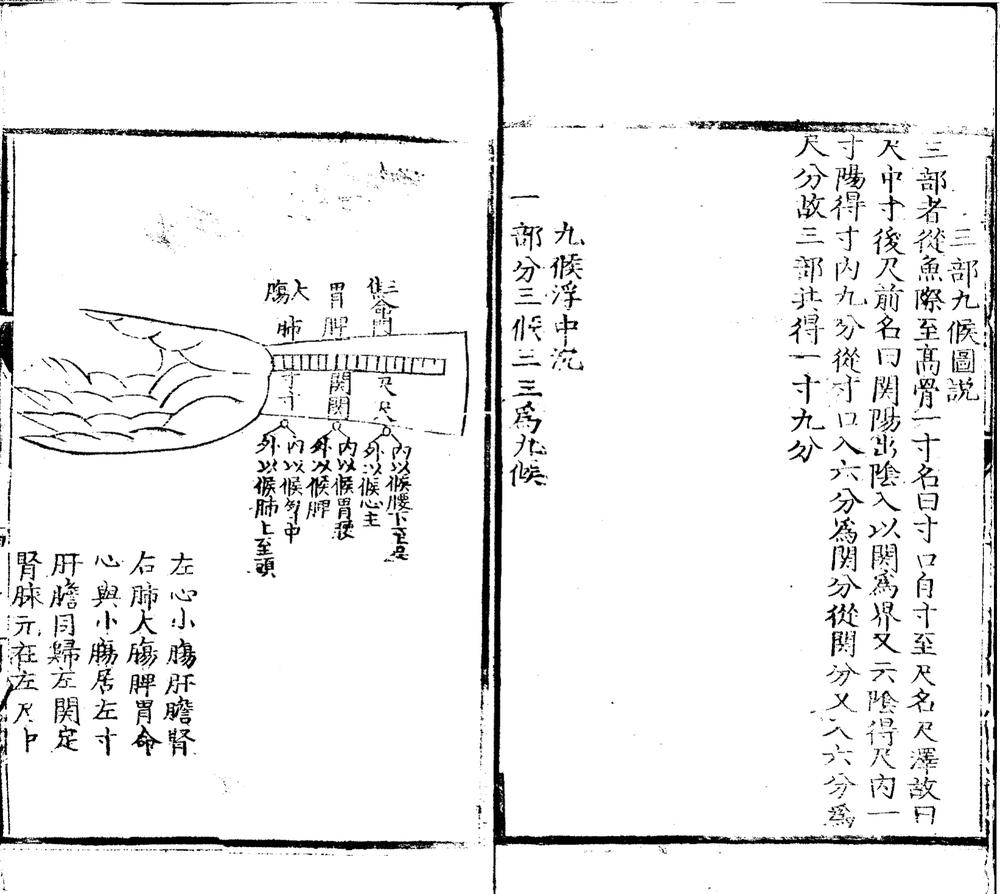 三部九候圖説
三部者從魚際至高骨一寸名曰寸口自寸至尺名尺澤故曰
尺中寸後尺前名曰関陽出陰入以関為界又云陰得尺内一
寸陽得寸内九分從寸口入六分為関分從関分又入六分為
尺分故三部共得一寸九分
九候浮中沉
一部分三候三三爲九候
三焦命門
胃脾
大膓肺
尺尺
関関
寸寸
内以候腰下至足
外以候心主
内以候胃
外以候脾
内以候胷中
外以候肺上至頭
左心小膓肝膽腎
右肺大膓脾胃命
心與小膓居左寸
肝膽同歸左関定
腎脉元在左尺中